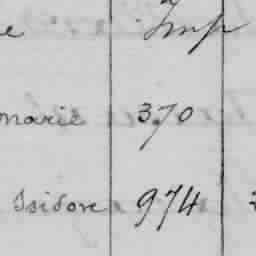 e Imp
onarie 370
Isidore 974